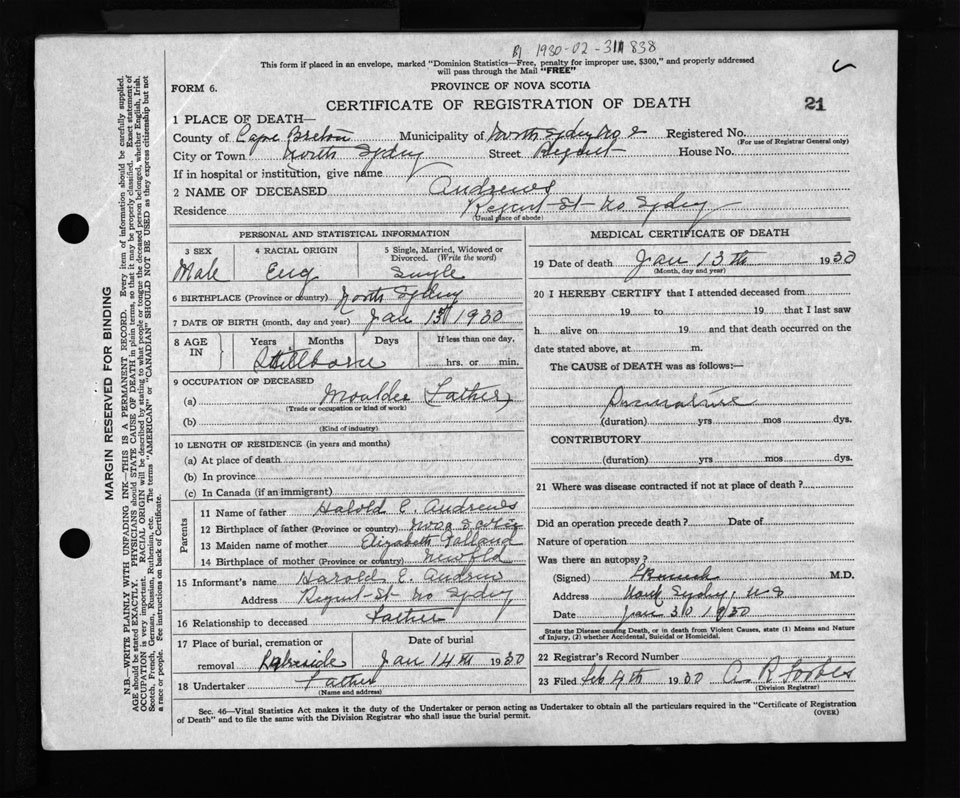 1930-02-311838
This form if placed in an envelope, marked "Dominion Statistics—Free, penalty for improper use, $300," and properly addressed
will pass through the Mail "FREE"
FORM 6.
PROVINCE OF NOVA SCOTIA
CERTIFICATE OF REGISTRATION OF DEATH
21
1 PLACE OF DEATH—
County of Cape Breton Municipality of North Sydney No 2 Registered No.
(For use of Registrar General only)
City or Town North Sydney Street Regent House No.
If in hospital or institution, give name
2 NAME OF DECEASED Andrews
Residence Regent St No Sydney
(Usual place of abode)
PERSONAL AND STATISTICAL INFORMATION
3 SEX Male
4 RACIAL ORIGIN Eng
5 Single, Married, Widowed or Divorced. (Write the word) Single
6 BIRTHPLACE (Province or country) North Sydney
7 DATE OF BIRTH (month, day and year) Jan 13th 1930
8 AGE IN Years Months Days If less than one day,
Stillborn hrs. or min.
9 OCCUPATION OF DECEASED
(a) Moulder (Father)
(Trade or occupation or kind of work)
(b)
(Kind of industry)
10 LENGTH OF RESIDENCE (in years and months)
(a) At place of death
(b) In province
(c) In Canada (if an immigrant)
Parents
11 Name of father Harold E. Andrews
12 Birthplace of father (Province or country) Nova Scotia
13 Maiden name of mother Elizabeth
14 Birthplace of mother (Province or country) Newfld
15 Informant's name Harold E. Andrews
Address Regent St No Sydney
16 Relationship to deceased Father
17 Place of burial, cremation or Date of burial
removal Lakeside Jan 14th 1930
18 Undertaker Father
(Name and address)
MEDICAL CERTIFICATE OF DEATH
19 Date of death Jan 13th 1930
(Month, day and year)
20 I HEREBY CERTIFY that I attended deceased from
19 to 19 that I last saw
h alive on 19 and that death occurred on the
date stated above, at m.
The CAUSE of DEATH was as follows:—
Premature
(duration) yrs mos dys.
CONTRIBUTORY
(duration) yrs mos dys.
21 Where was disease contracted if not at place of death?
Did an operation precede death? Date of
Nature of operation
Was there an autopsy?
(Signed) M.D.
Address North Sydney, N S
Date Jan 30 1930
State the Disease causing Death, or in death from Violent Causes, state (1) Means and Nature
of Injury, (2) whether Accidental, Suicidal or Homicidal.
22 Registrar's Record Number
23 Filed Feb 4th 1930 A. R. Forbes
(Division Registrar)
Sec. 46—Vital Statistics Act makes it the duty of the Undertaker or person acting as Undertaker to obtain all the particulars required in the "Certificate of Registration
of Death" and to file the same with the Division Registrar who shall issue the burial permit.
(OVER)
MARGIN RESERVED FOR BINDING
N.B.—WRITE PLAINLY WITH UNFADING INK—THIS IS A PERMANENT RECORD. Every item of information should be carefully supplied.
AGE should be stated EXACTLY. PHYSICIANS should STATE CAUSE OF DEATH in plain terms, so that it may be properly classified. Exact statement of
OCCUPATION is very important. RACIAL ORIGIN will be described by stating to what people or tongue the deceased person belonged, whether English, Irish,
Scotch, French, German, Russian, Ruthenian, etc. The terms "AMERICAN" or "CANADIAN" SHOULD NOT BE USED as they express citizenship but not
a race or people. See instructions on back of Certificate.